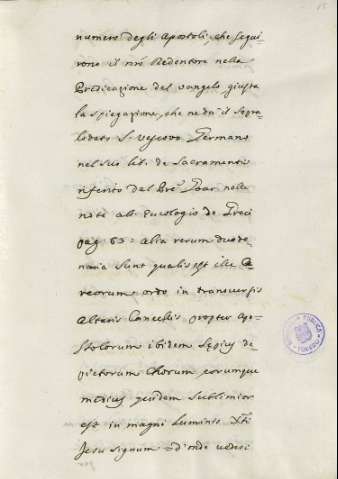 numero degli Apostoli, che segui-
rono il nro Redentore nella
Predicazione del vangelo giusta
la spiegazione, che ne dà il sopra-
lodato S. Vescovo Germano
nel suo lib. de Sacramentis
riferito dal Pre Goar nelle
note all' Eucologio de Greci
pag 63= alia rerum duode-
naria sunt qualis est ille
reorum ordo in transversis
Altaris Cancellis propter Apo-
stolorum ibidem sepius de-
pictorum Chorum eorumque
medius quidem sublimior
est in magni Luminis Xti
Jesu signum = d'onde vedesi